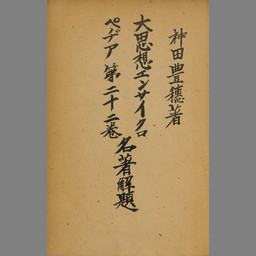 神田豊穂著
大思想エンサイクロ
ペヂア 第二十二巻
名著解題